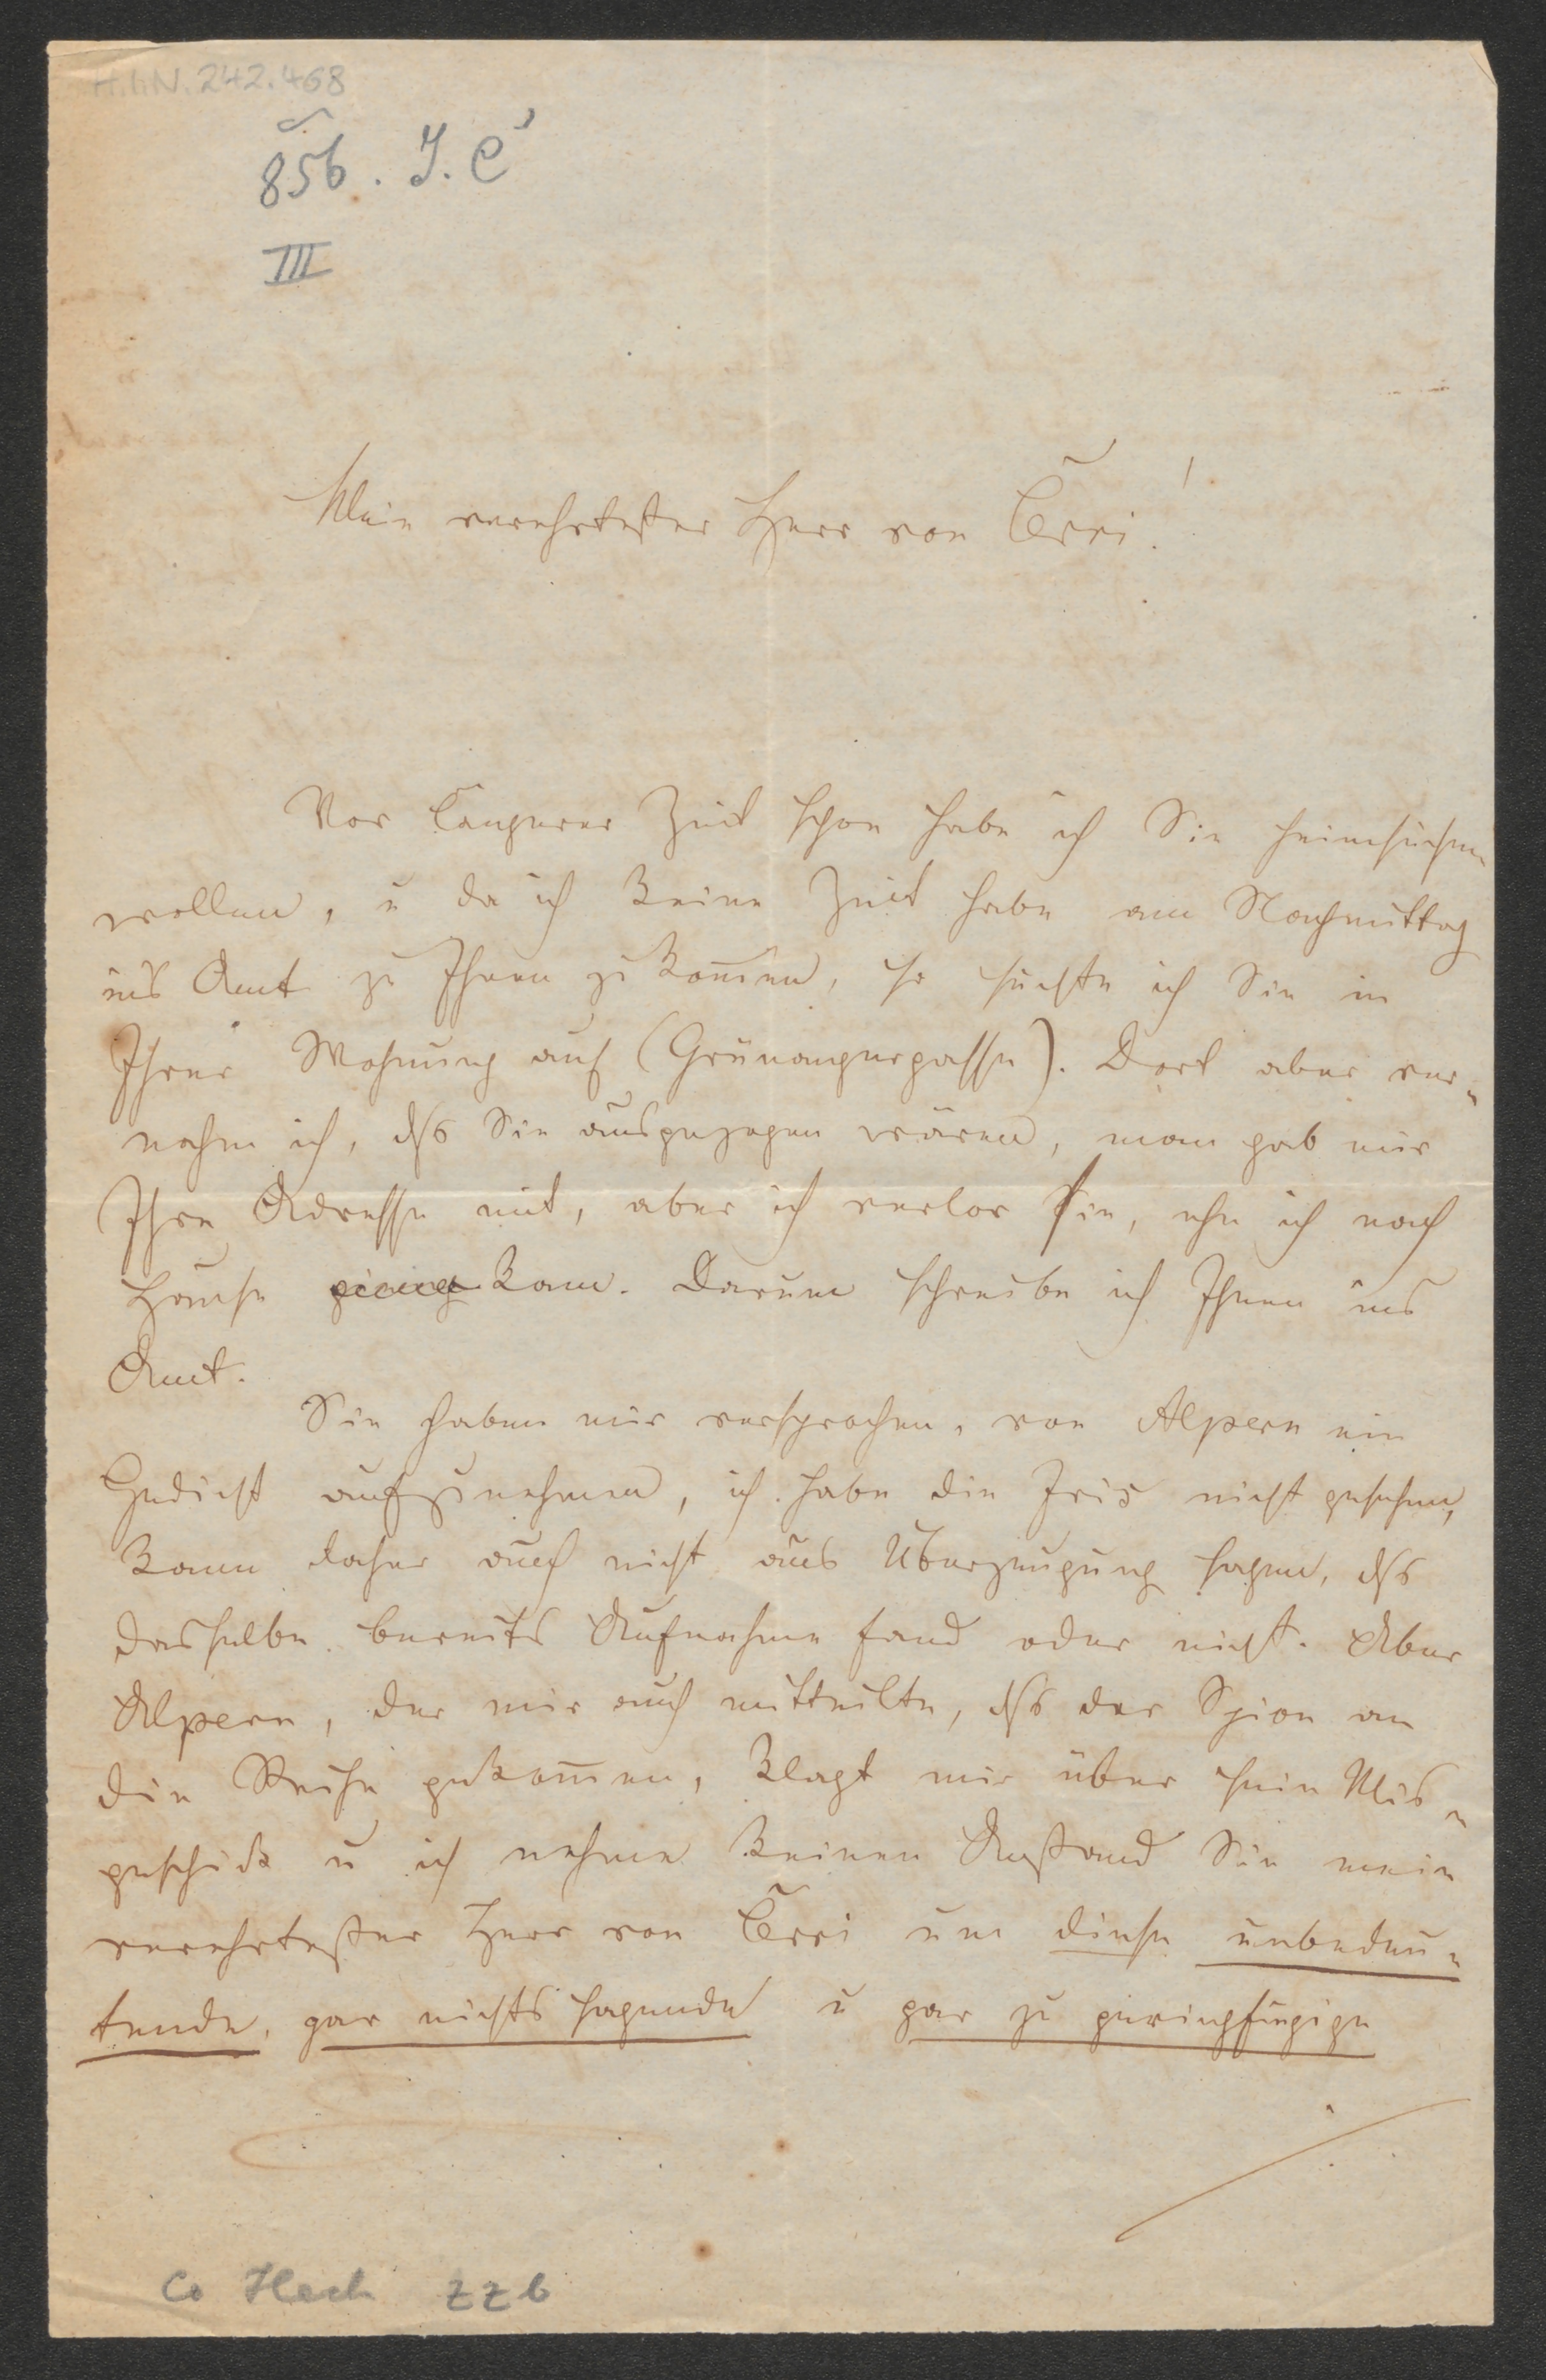 H.I.N. 242.468
856. J. C
III
Mein verehrtester Herr von Cerri!
Vor längerer Zeit schon habe ich Sie heimsuchen
wollen, u da ich keine Zeit habe am Nachmittag
ins Amt zu Ihnen zu kom̄en, so suchte ich Sie in
Ihrer Wohnung auf (Grünangergasse). Dort aber ver-
nahm ich, dß Sie ausgezogen wären, man gab mir
Ihre Adresse mit, aber ich verlor sie, ehe ich nach
Hause kam. Darum schreibe ich Ihnen ins
Amt.
Sie haben mir versprochen, von Alpern ein
Gedicht aufzunehmen, ich habe die Iris nicht gesehen,
kann daher auch nicht aus Überzeugung sagen, dß
dasselbe bereits Aufnahme fand oder nicht. Aber
Alpern, der mir auch mittheilte, dß der Spion an
die Reihe gekom̄en, klagt mir über sein Mis-
geschik u ich nehme keinen Anstand Sie mein
verehrtester Herr von Cerri um diese unbedeu-
tende, gar nichts sagende u gar zu geringfügige